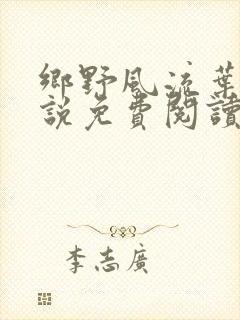 鄉野風流葉
說免費閱讀
李志廣